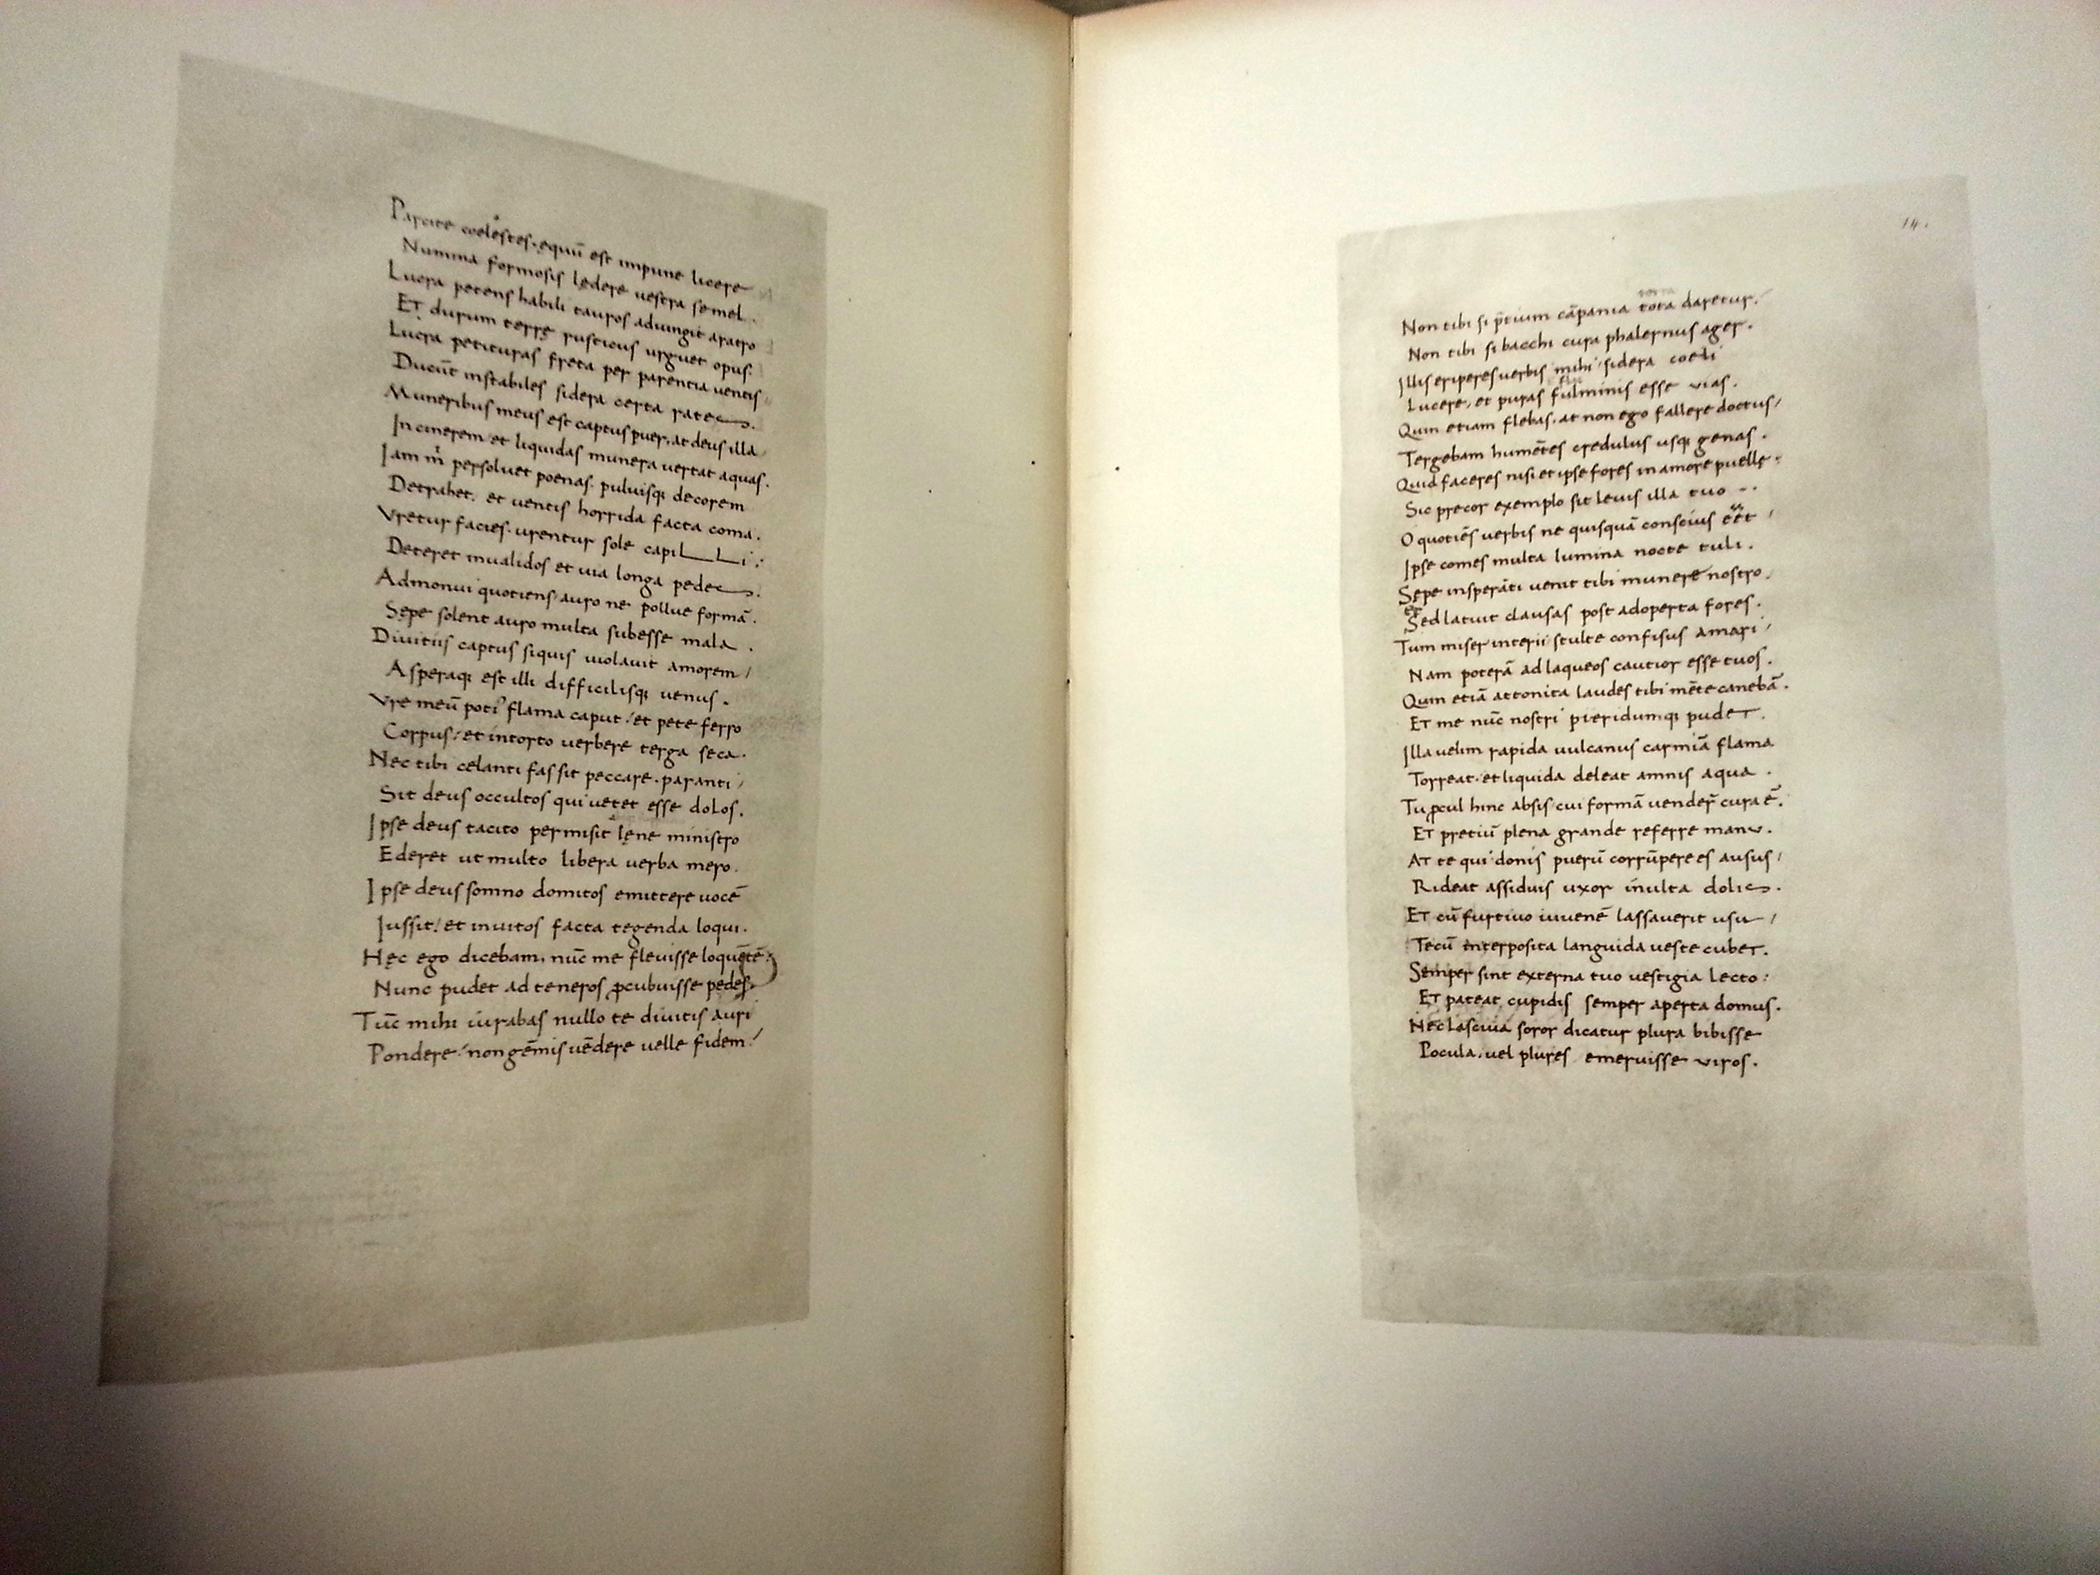 Parcite coelestes. ęquū est impune licere
Numina formosis lędere vestra semel.
Lucra petens habili tauros adiungit aratro
Et durum terrę rusticus urguet opus.
Lucra petituras freta per parentia ventis
Ducūt instabiles sidera certa rates.
Muneribus meus est captus puer, at deus illa
In cinerem et liquidas munera vertat aquas.
Iam m persoluet poenas. puluisq; decorem
Detrahet. et ventis horrida facta coma.
Vretur facies. urentur sole capilli:
Deteret invalidos et via longa pedes.
Admonui quotiens auro ne pollue formā.
Sępe solent auro multa subesse mala.
Divitiis captus siquis violavit amorem/
Asperaq; est illi difficilisq; venus.
Vre meū poti flama caput/ et pete ferro
Corpus/ et intorto verbere terga seca.
Nec tibi celanti fas sit peccare. paranti/
Sit deus occultos qui vetet esse dolos.
Ipse deus tacito permisit lęne ministro
Ederet ut multo libera verba mero.
Ipse deus somno domitos emittere vocē
Iussit/ et invitos facta tegenda loqui.
Hęc ego dicebam, nūc me flevisse loquētē:
Nunc pudet ad teneros ꝓcubuisse pedes.
Tūc mihi iurabas nullo te divitis auri
Pondere/ non gēmis vēdere velle fidem/
14.
Non tibi si p̄tium cāpania tota daretur.
Non tibi si bacchi cura phalernus ager.
Illis eriperes verbis mihi sidera coeli
Lucere, et puras fulminis esse vias.
Quin etiam flebas. at non ego fallere doctus/
Tergebam humētes credulus usq; genas.
Quid faceres nisi et ipse fores in amore puellę
Sic precor exemplo sit levis illa tuo.
O quotiēs verbis ne quisquā conscius eet/
Ipse comes multa lumina nocte tuli.
Sępe insperāti venit tibi munere nostro.
et
Sed latuit clausas post adoperta fores.
Tum miser interii stulte confisus amari/
Nam poterā ad laqueos cautior esse tuos.
Quin etiā attonita laudes tibi mēte canebā.
Et me nūc nostri pieridumq; pudet.
Illa velim rapida vulcanus carmiā flama
Torreat. et liquida deleat amnis aqua.
Tu ꝓcul hinc absis cui formā vender̄ cura ē.
Et pretiū plena grande referre manu.
At te qui donis puerū corrūpere es ausus/
Rideat assiduis uxor inulta dolis.
Et cū furtivo iuvenē lassaverit usu/
Tecū interposita languida veste cubet.
Semper sint externa tuo vestigia lecto:
Et pateat cupidis semper aperta domus.
Nec lasciva soror dicatur plura bibisse
Pocula, vel plures emeruisse viros.